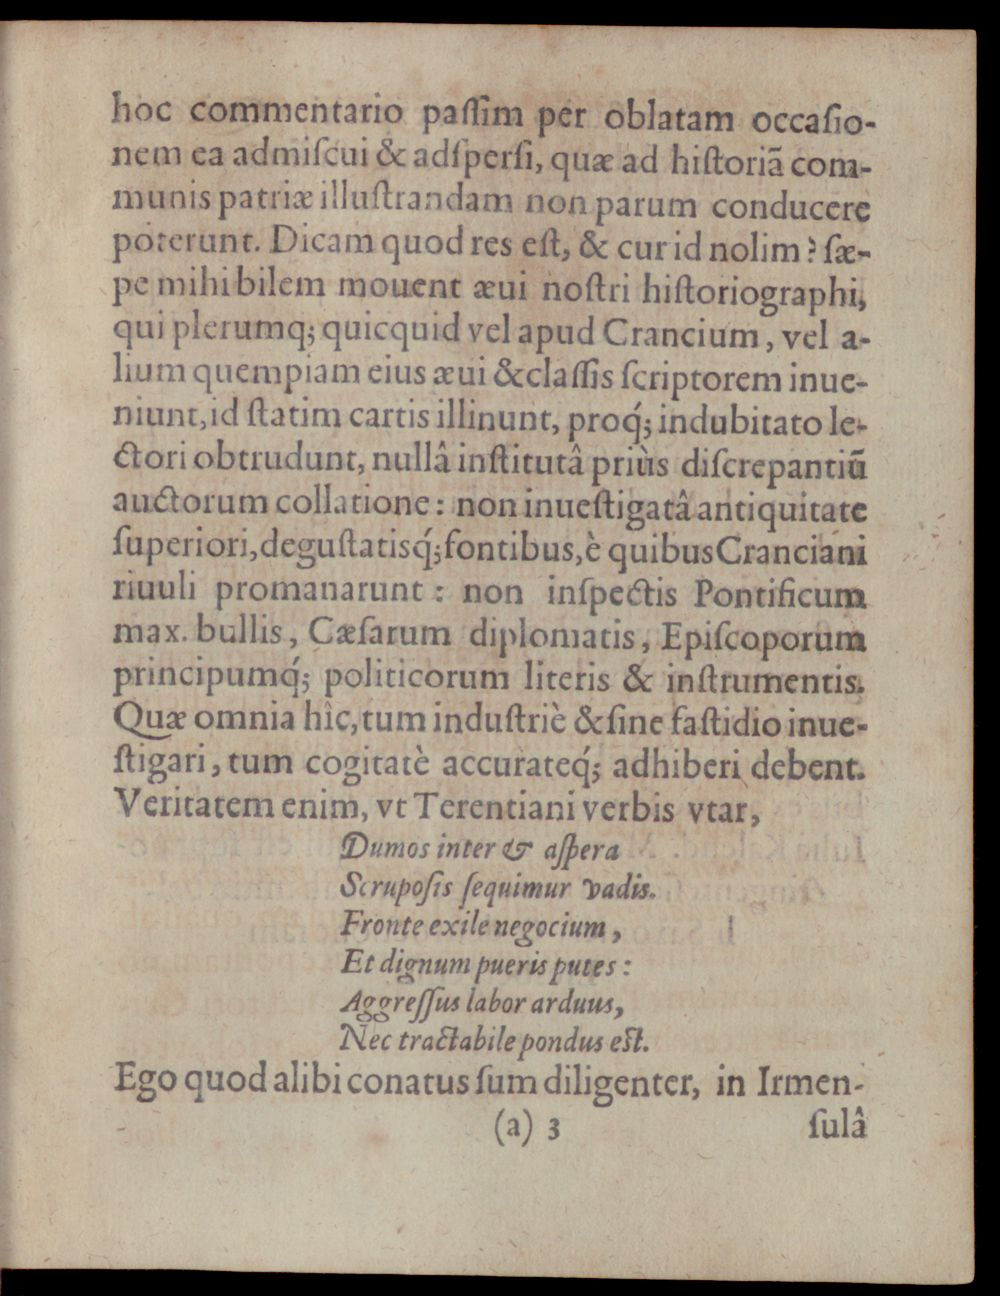 hoc commentario paſſim per oblatam occaſio-
nem ea admiſcui & adſperſi, quæ ad hiſtoriã com-
munis patriæ illuſtrandam non parum conducere
poterunt. Dicam quod res eſt, & cur id nolim? ſæ-
pe mihi bilem mouent æui noſtri hiſtoriographi,
qui plerumq; quicquid vel apud Crancium, vel a-
lium quempiam eius æui & claſſis ſcriptorem inue-
niunt, id ſtatim cartis illinunt, proq́; indubitato le-
ctori obtrudunt, nullâ inſtitutâ priùs diſcrepantiũ
auctorum collatione: non inueſtigatâ antiquitate
ſuperiori, deguſtatisq́; fontibus, è quibus Cranciani
riuuli promanarunt: non inſpectis Pontificum
max. bullis, Cæſarum diplomatis, Epiſcoporum
principumq́; politicorum literis & inſtrumentis.
Quæ omnia hîc, tum induſtriè & ſine faſtidio inue-
ſtigari, tum cogitatè accurateq́; adhiberi debent.
Veritatem enim, vt Terentiani verbis vtar,
Dumos inter & aſpera
Scrupoſis ſequimur vadis.
Fronte exile negocium,
Et dignum pueris putes:
Aggreſſus labor arduus,
Nec tractabile pondus eſt.
Ego quod alibi conatus ſum diligenter, in Irmen-
(a) 3 ſulâ